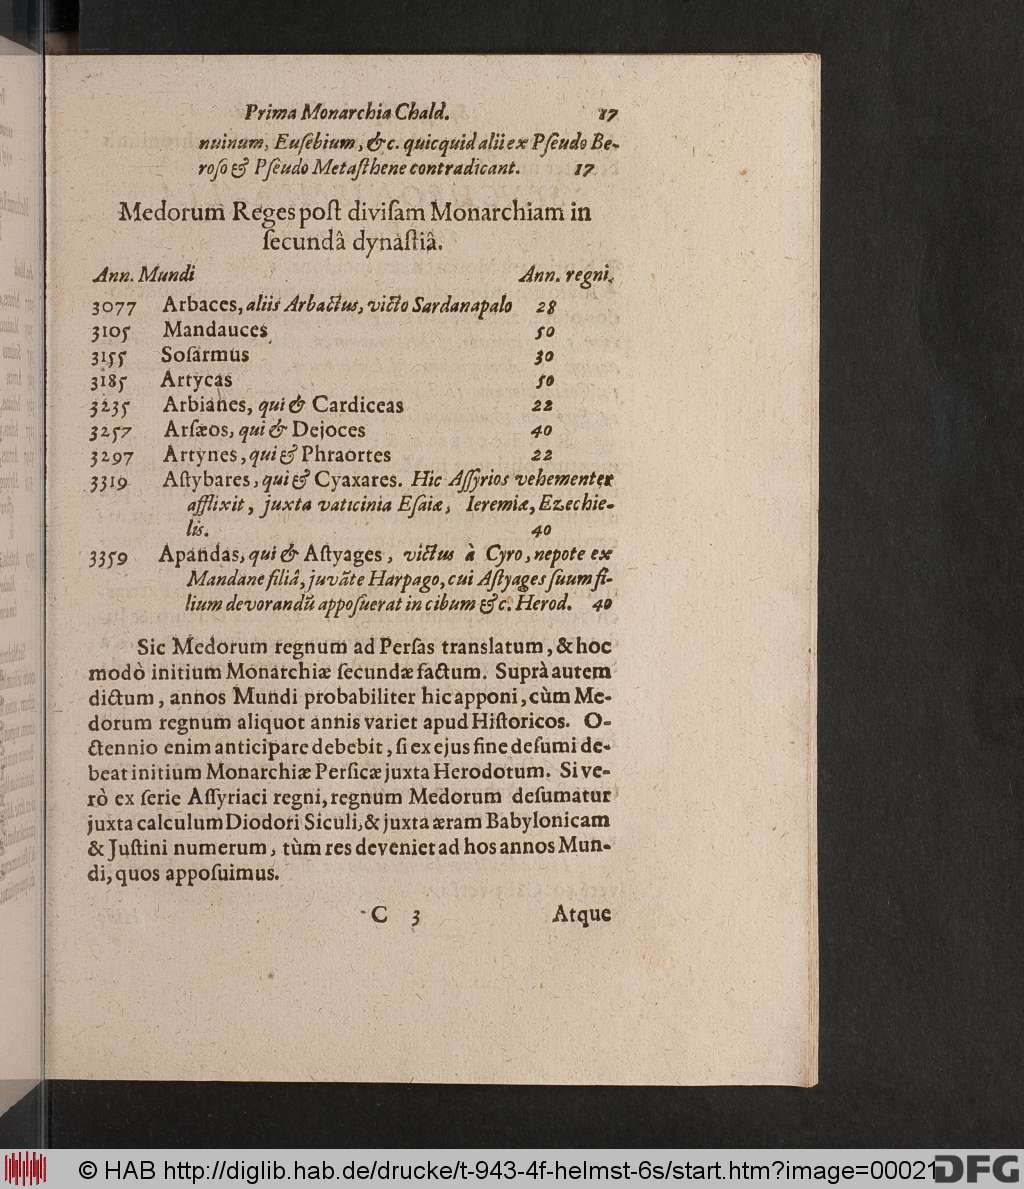 Prima Monarchia Chald. 17
nuinum, Euſebium, &c. quicquid alii ex Pſeudo Be-
roſo & Pſeudo Metaſthene contradicant. 17
Medorum Reges poſt diviſam Monarchiam in
ſecundâ dynaſtiâ.
Ann. Mundi Ann. regni.
3077 Arbaces, aliis Arbactus, victo Sardanapalo 28
3105 Mandauces 50
3155 Soſarmus 30
3185 Artycas 50
3235 Arbianes, qui & Cardiceas 22
3257 Arſæos, qui & Dejoces 40
3297 Artynes, qui & Phraortes 22
3319 Aſtybares, qui & Cyaxares. Hic Aſſyrios vehementer
afflixit, juxta vaticinia Eſaiæ, Ieremiæ, Ezechie-
lis. 40
3359 Apandas, qui & Aſtyages, victus à Cyro, nepote ex
Mandane filiâ, juvãte Harpago, cui Aſtyages ſuum fi-
lium devorandũ appoſuerat in cibum &c. Herod. 40
Sic Medorum regnum ad Perſas translatum, & hoc
modò initium Monarchiæ ſecundæ factum. Suprà autem
dictum, annos Mundi probabiliter hic apponi, cùm Me-
dorum regnum aliquot annis variet apud Hiſtoricos. O-
ctennio enim anticipare debebit, ſi ex ejus fine deſumi de-
beat initium Monarchiæ Perſicæ juxta Herodotum. Si ve-
rò ex ſerie Aſſyriaci regni, regnum Medorum deſumatur
juxta calculum Diodori Siculi, & juxta æram Babylonicam
& Juſtini numerum, tùm res deveniet ad hos annos Mun-
di, quos appoſuimus.
C 3 Atque
© HAB http://diglib.hab.de/drucke/t-943-4f-helmst-6s/start.htm?image=00021
DFG